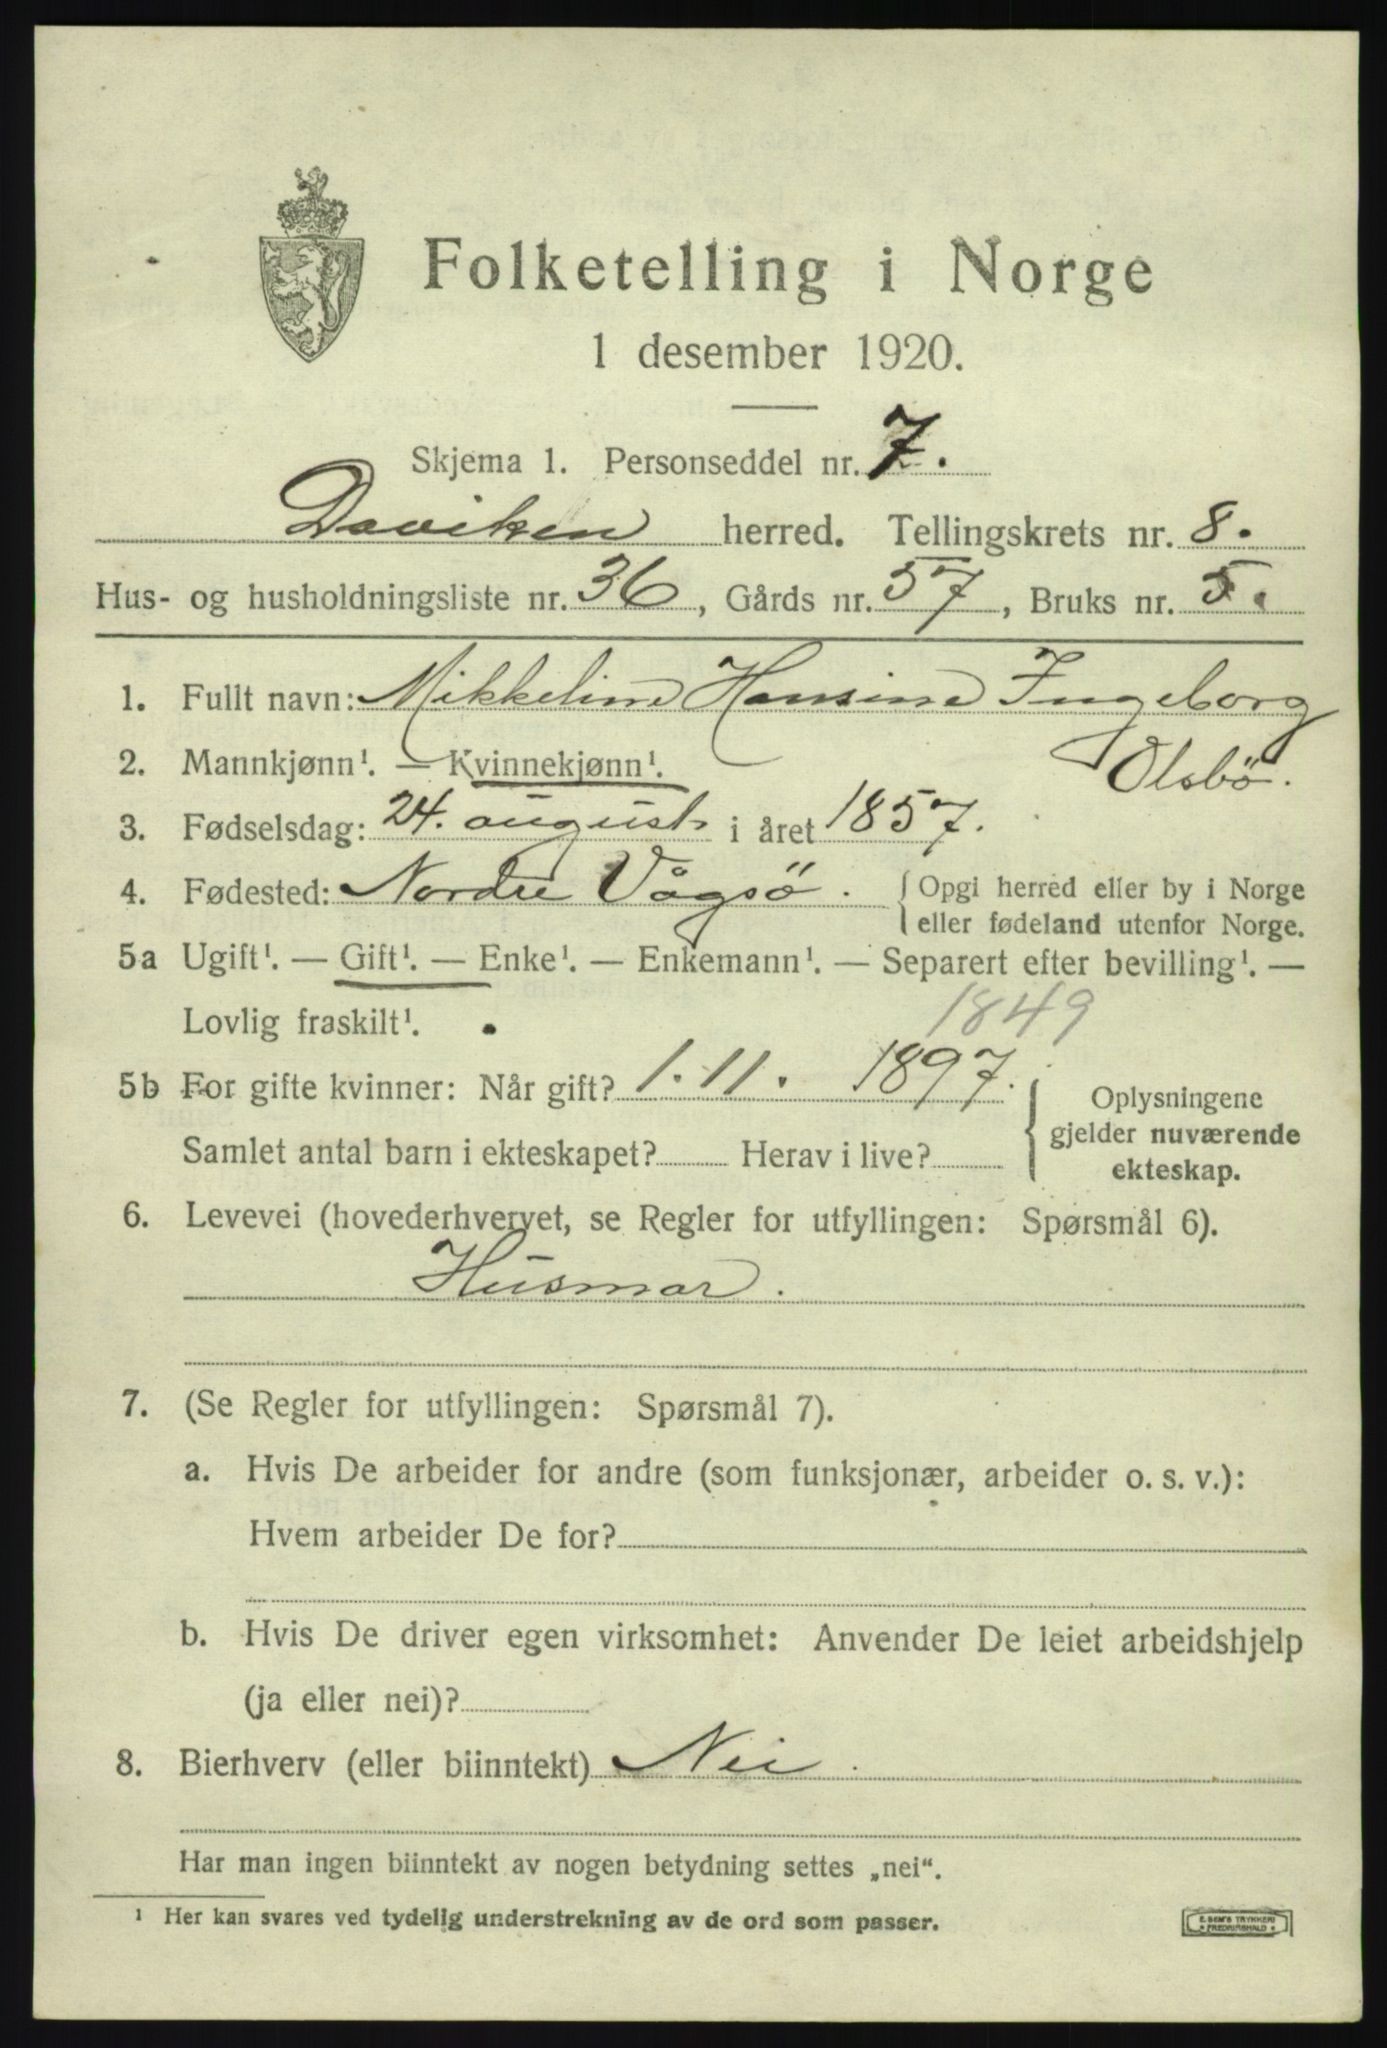 Folketelling i Norge
1 desember 1920.
Skjema 1. Personseddel nr. 7.
Daviken herred. Tellingskrets nr. 8.
Hus- og husholdningsliste nr. 36, Gårds nr. 57, Bruks nr. 5.
1. Fullt navn: Mikkeline Hansine Ingeborg
Olsbö.
2. Mannkjønn¹. — Kvinnekjønn¹.
3. Fødselsdag: 24. august i året 1857.
4. Fødested: Nordre Vågsö. { Opgi herred eller by i Norge
eller fødeland utenfor Norge.
5a Ugift¹. — Gift¹. — Enke¹. — Enkemann¹. — Separert efter bevilling¹. —
Lovlig fraskilt¹.
1849
5b For gifte kvinner: Når gift? 1.11. 1897.
Samlet antal barn i ekteskapet? Herav i live?
Oplysningene
gjelder nuværende
ekteskap.
6. Levevei (hovederhvervet, se Regler for utfyllingen: Spørsmål 6).
Husmor.
7. (Se Regler for utfyllingen: Spørsmål 7).
a. Hvis De arbeider for andre (som funksjonær, arbeider o. s. v.):
Hvem arbeider De for?
b. Hvis De driver egen virksomhet: Anvender De leiet arbeidshjelp
(ja eller nei)?
8. Bierhverv (eller biinntekt) Nei.
Har man ingen biinntekt av nogen betydning settes „nei“.
¹ Her kan svares ved tydelig understrekning av de ord som passer.
E. SEM'S TRYKKERI
FREDRIKSHALD